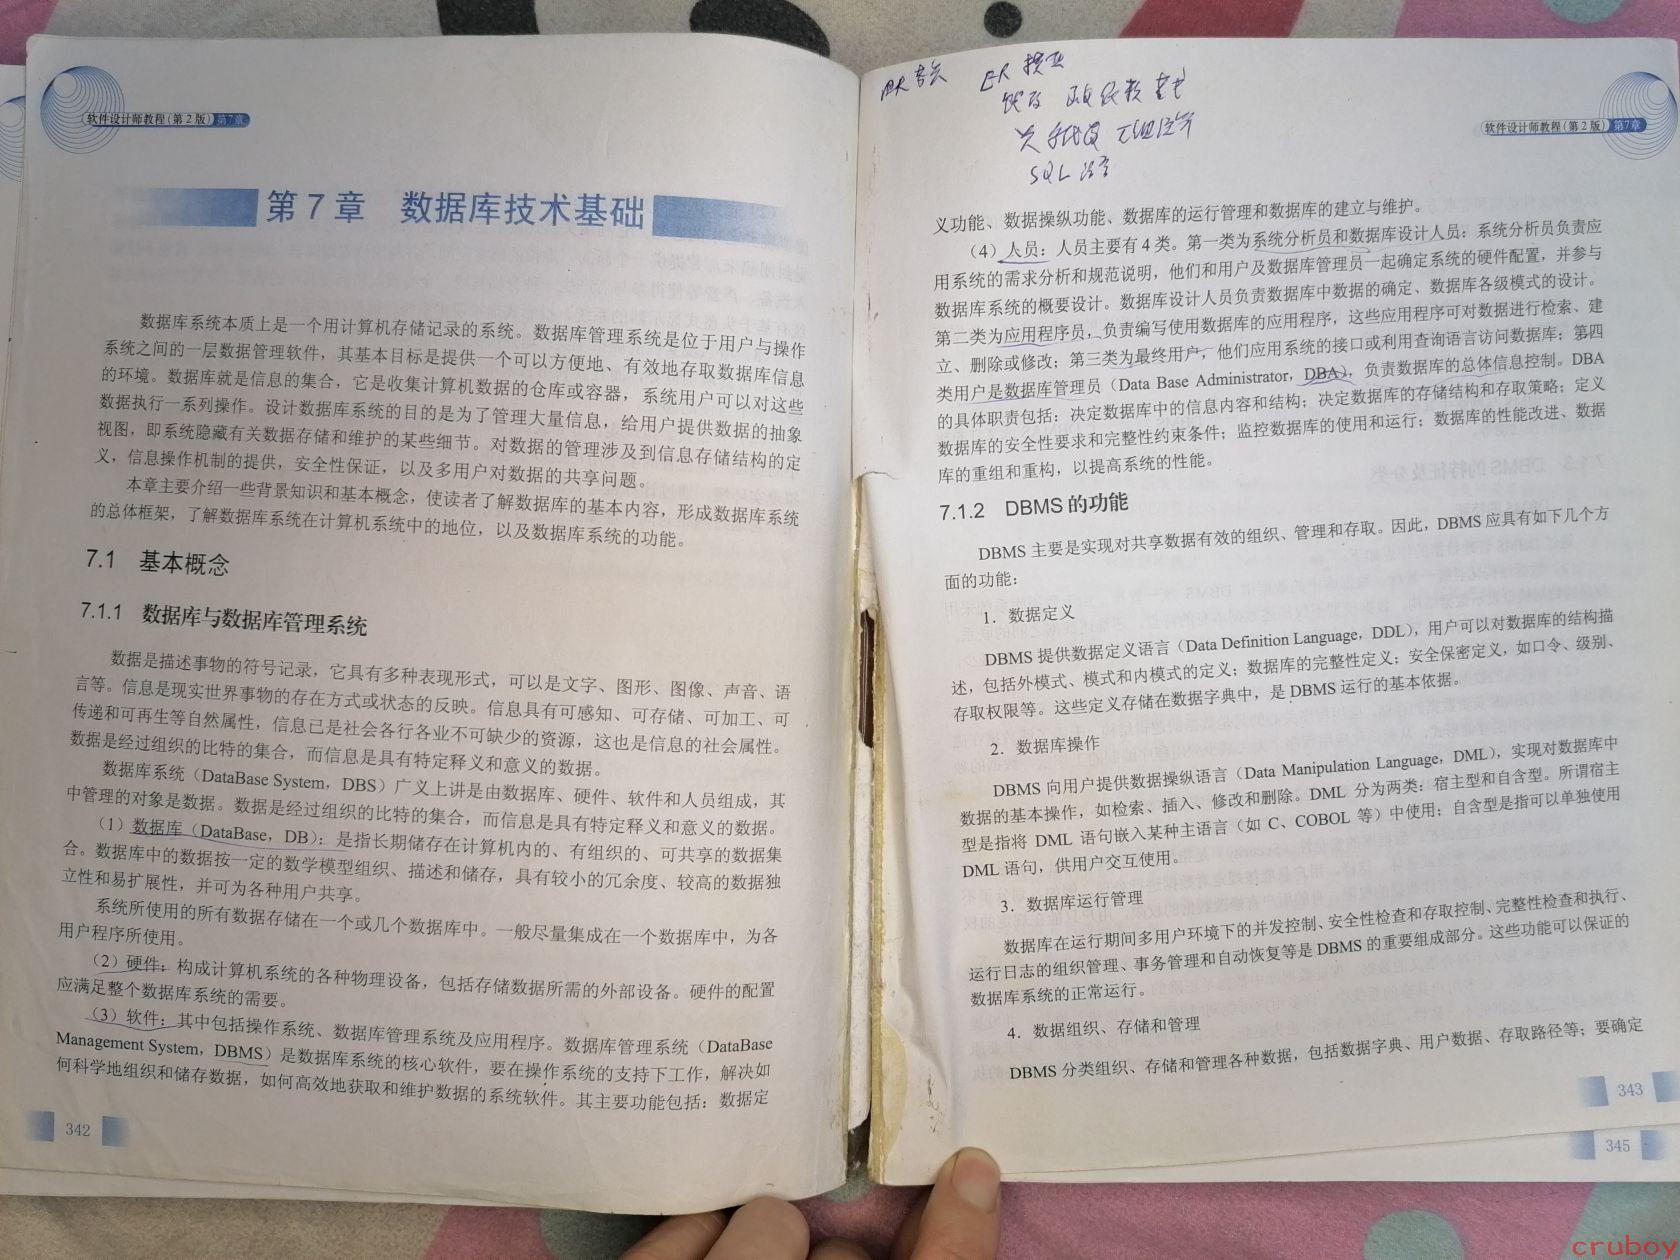 软件设计师教程(第2版) 第7章
第7章 数据库技术基础
数据库系统本质上是一个用计算机存储记录的系统。数据库管理系统是位于用户与操作
系统之间的一层数据管理软件，其基本目标是提供一个可以方便地、有效地存取数据库信息
的环境。数据库就是信息的集合，它是收集计算机数据的仓库或容器，系统用户可以对这些
数据执行一系列操作。设计数据库系统的目的是为了管理大量信息，给用户提供数据的抽象
视图，即系统隐藏有关数据存储和维护的某些细节。对数据的管理涉及到信息存储结构的定
义，信息操作机制的提供，安全性保证，以及多用户对数据的共享问题。
本章主要介绍一些背景知识和基本概念，使读者了解数据库的基本内容，形成数据库系统
的总体框架，了解数据库系统在计算机系统中的地位，以及数据库系统的功能。
7.1 基本概念
7.1.1 数据库与数据库管理系统
数据是描述事物的符号记录，它具有多种表现形式，可以是文字、图形、图像、声音、语
言等。信息是现实世界事物的存在方式或状态的反映。信息具有可感知、可存储、可加工、可
传递和可再生等自然属性，信息已是社会各行各业不可缺少的资源，这也是信息的社会属性。
数据是经过组织的比特的集合，而信息是具有特定释义和意义的数据。
数据库系统（DataBase System，DBS）广义上讲是由数据库、硬件、软件和人员组成，其
中管理的对象是数据。数据是经过组织的比特的集合，而信息是具有特定释义和意义的数据。
（1）数据库（DataBase，DB）：是指长期储存在计算机内的、有组织的、可共享的数据集
合。数据库中的数据按一定的数学模型组织、描述和储存，具有较小的冗余度、较高的数据独
立性和易扩展性，并可为各种用户共享。
系统所使用的所有数据存储在一个或几个数据库中。一般尽量集成在一个数据库中，为各
用户程序所使用。
（2）硬件：构成计算机系统的各种物理设备，包括存储数据所需的外部设备。硬件的配置
应满足整个数据库系统的需要。
（3）软件：其中包括操作系统、数据库管理系统及应用程序。数据库管理系统（DataBase
Management System，DBMS）是数据库系统的核心软件，要在操作系统的支持下工作，解决如
何科学地组织和储存数据，如何高效地获取和维护数据的系统软件。其主要功能包括：数据定
342
ER 模型
SQL 语言
软件设计师教程(第2版) 第7章
义功能、数据操纵功能、数据库的运行管理和数据库的建立与维护。
（4）人员：人员主要有4类。第一类为系统分析员和数据库设计人员：系统分析员负责应
用系统的需求分析和规范说明，他们和用户及数据库管理员一起确定系统的硬件配置，并参与
数据库系统的概要设计。数据库设计人员负责数据库中数据的确定、数据库各级模式的设计。
第二类为应用程序员，负责编写使用数据库的应用程序，这些应用程序可对数据进行检索、建
立、删除或修改；第三类为最终用户，他们应用系统的接口或利用查询语言访问数据库；第四
类用户是数据库管理员（Data Base Administrator，DBA），负责数据库的总体信息控制。DBA
的具体职责包括：决定数据库中的信息内容和结构；决定数据库的存储结构和存取策略；定义
数据库的安全性要求和完整性约束条件；监控数据库的使用和运行；数据库的性能改进、数据
库的重组和重构，以提高系统的性能。
7.1.2 DBMS的功能
DBMS主要是实现对共享数据有效的组织、管理和存取。因此，DBMS应具有如下几个方
面的功能：
1．数据定义
DBMS提供数据定义语言（Data Definition Language，DDL），用户可以对数据库的结构描
述，包括外模式、模式和内模式的定义；数据库的完整性定义；安全保密定义，如口令、级别、
存取权限等。这些定义存储在数据字典中，是DBMS运行的基本依据。
2．数据库操作
DBMS向用户提供数据操纵语言（Data Manipulation Language，DML），实现对数据库中
数据的基本操作，如检索、插入、修改和删除。DML分为两类：宿主型和自含型。所谓宿主
型是指将DML语句嵌入某种主语言（如C、COBOL等）中使用；自含型是指可以单独使用
DML语句，供用户交互使用。
3．数据库运行管理
数据库在运行期间多用户环境下的并发控制、安全性检查和存取控制、完整性检查和执行、
运行日志的组织管理、事务管理和自动恢复等是DBMS的重要组成部分。这些功能可以保证的
数据库系统的正常运行。
4．数据组织、存储和管理
DBMS分类组织、存储和管理各种数据，包括数据字典、用户数据、存取路径等；要确定
343
345
cruboy